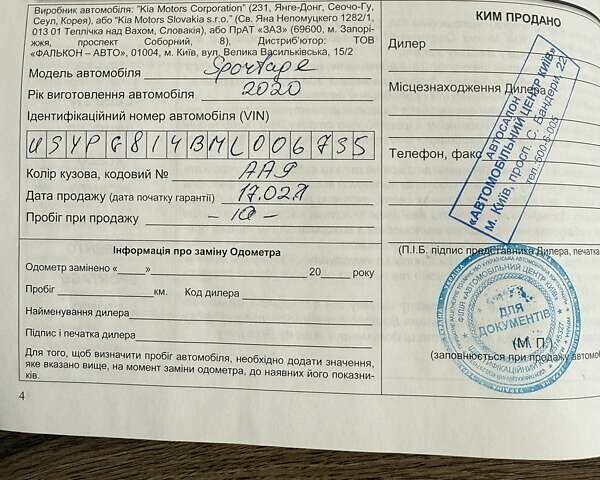 Виробник автомобіля: "Kia Motors Corporation" (231, Янге-Донг, Сеочо-Гу,
Сеул, Корея), або "Kia Motors Slovakia s.r.o." (Св. Яна Непомуцкего 1282/1,
013 01 Теплічка над Вахом, Словакія), або ПрАТ «ЗАЗ» (69600, м. Запорі-
жжя, проспект Соборний, 8), Дистриб'ютор: ТОВ
«ФАЛЬКОН – АВТО», 01004, м. Київ, вул. Велика Васильківська, 15/2
Модель автомобіля Sportage
Рік виготовлення автомобіля 2020
Ідентифікаційний номер автомобіля (VIN)
U5YPG814BML006735
Колір кузова, кодовий №
Дата продажу (дата початку гарантії) 17.02.21
Пробіг при продажу – 10 –
Інформація про заміну Одометра
Одометр замінено «____» ____ 20____ року
Пробіг ____ км. Код дилера
Найменування дилера
Підпис і печатка дилера
Для того, щоб визначити пробіг автомобіля, необхідно додати значення,
яке вказано вище, на момент заміни одометра, до наявних його показни-
ків.
4
КИМ ПРОДАНО
Дилер
Місцезнаходження Дилера
Телефон, факс
АВТОСАЛОН
«АВТОМОБІЛЬНИЙ ЦЕНТР КИЇВ»
м. Київ, просп. С. Бандери, 22
(П.І.Б. підпис представника Дилера, печатка
ФІЛІЯ «АВТОМОБІЛЬНИЙ ЦЕНТР КИЇВ»
ДЛЯ
ДОКУМЕНТІВ
(М. П.)
(заповнюється при продажу автомо